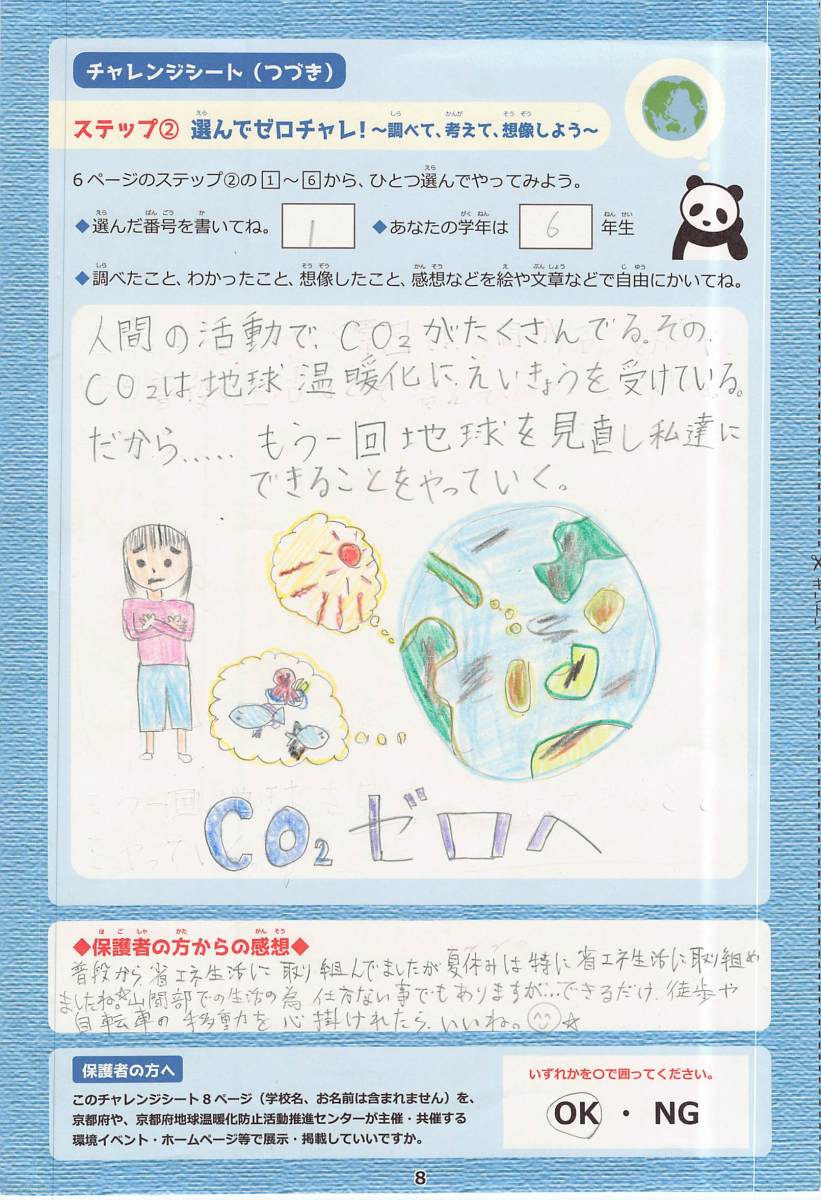 チャレンジシート（つづき）
ステップ② 選んでゼロチャレ！～調べて、考えて、想像しよう～
6ページのステップ②の1～6から、ひとつ選んでやってみよう。
◆選んだ番号を書いてね。 1 ◆あなたの学年は 6 年生
◆調べたこと、わかったこと、想像したこと、感想などを絵や文章などで自由にかいてね。
人間の活動で、CO2がたくさんでる。その
CO2は地球温暖化に、えいきょうを受けている。
だから..... もう一回地球を見直し私達に
できることをやっていく。
CO2 ゼロへ
◆保護者の方からの感想◆
普段から省エネ生活に取り組んでましたが夏休みは特に省エネ生活に取り組め
ましたね。山間部での生活の為 仕方ない事でもありますが…できるだけ、徒歩や
自転車の移動を心掛けれたら、いいね。☆
保護者の方へ
このチャレンジシート8ページ（学校名、お名前は含まれません）を、
京都府や、京都府地球温暖化防止活動推進センターが主催・共催する
環境イベント・ホームページ等で展示・掲載していいですか。
いずれかを〇で囲ってください。
OK ・ NG
8